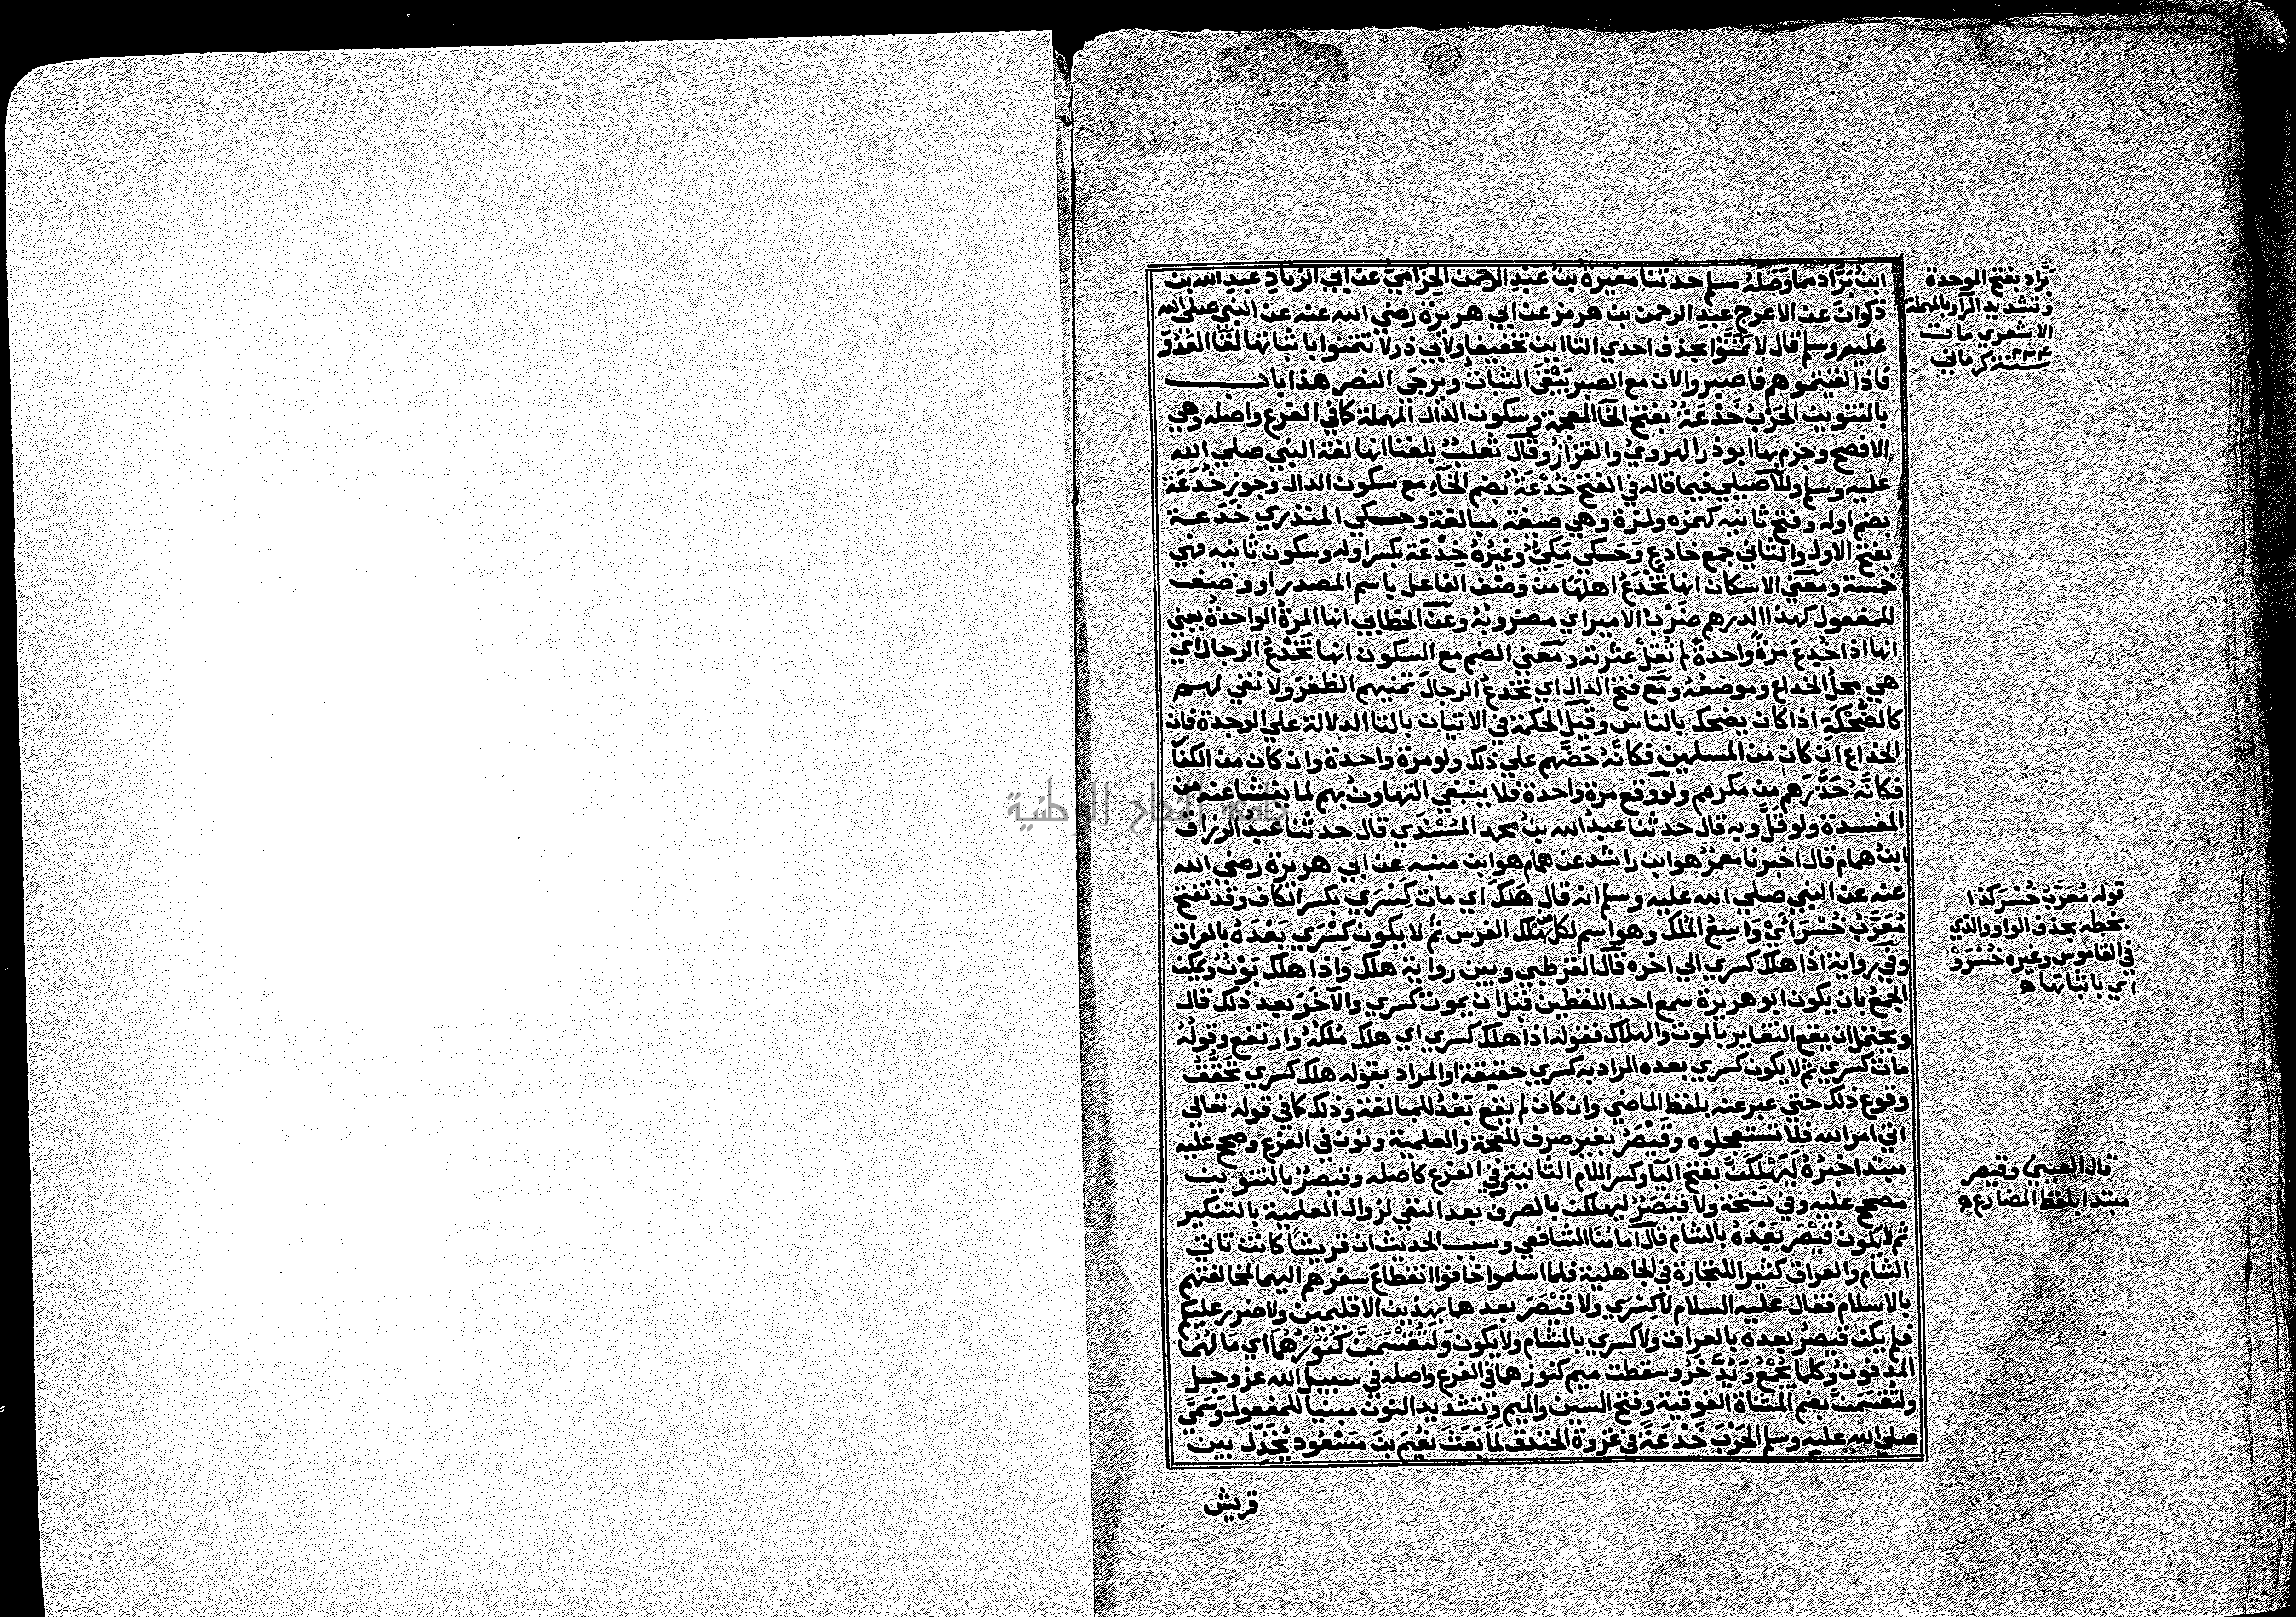 ابن بَرَّاد مما وَصَلَهُ مسلم حدثنا مغيرة بن عبد الرحمن الحِزامي عن ابي الزناد عبد الله بن
ذكوان عن الاعرج عبد الرحمن بن هرمز عن ابي هريرة رضي الله عنه عن النبي صلى الله
عليه وسلم قال لا تمنّوا بحذف احدي التاين تخفيفا ولابي ذر لا تتمنوا باثباتها لقا العدوّ
فاذا لقيتموهم فاصبروا لان مع الصبر يَبْقَى الثبات ويرجى النصر هذا باب
بالتنوين الحَرْبُ خَدْعَة بفتح الخآ المعجمة وسكون الدال المهملة كما في الفرع واصله وهي
الافصح وجزم بها ابو ذر الهروي والقزاز وقال ثعلب بلغنا انها لغة النبي صلي الله
عليه وسلم وللاصيلي فيما قاله في الفتح خُدْعَة بضم الخآء مع سكون الدال وجوز خُدَعَة
بضم اوله وفتح ثانيه كهمزه ولمزة وهي صيغة مبالغة وحكي المنذري خَدَعة
بفتح الاول والثاني جمع خادع وَحَكي مَكِيٌّ وغيرُهُ خِدْعَة بكسر اوله وسكون ثانيه فهي
خمسة ومَعني الاسكان انها تَخْدَعُ اهلَها من وَصْف الفاعل باسم المصدر او وصف
للمفعول كهذا الدرهم ضَرْبُ الامير اي مضروبُهُ وعَن الخطابي انها المرةُ الواحدةُ يعني
انها اذا خُدِعَ مرةً واحدةً لم تُقَلْ عَثرته ومَعني الضم مع السكون انها تَخْدَعُ الرجالَ اي
هي محلُّ الخداع وموضعُهُ ومَع فتح الدال اي تخدعُ الرجالَ تمنيهم الظفرَ ولا تفي لهم
كالضُّحَكَةِ اذا كان يضحك بالناس وقيل الحكمة في الاتيان بالتا الدلالة علي الوحدة فان
الخداع ان كان من المسلمين فكانّهُ حَضَّهم علي ذلك ولو مرة واحدة وان كان من الكفار
فكانّهُ حَذَّرَهم من مكرهم ولو وقع مرة واحدة فلا ينبغي التهاونُ بهم لما ينشا عنه من
المفسدة ولو قَلَّ وبه قال حدثنا عبدُ الله بنُ محمد المُسْنَدَي قال حدثنا عبد الرزاق
ابنُ همام قال اخبرنا معمرٌ هو ابن راشد عن همام هو ابن منبه عن ابي هريرة رضي الله
عنه عن النبي صلي الله عليه وسلم انه قال هَلكَ اي مات كِسْرَي بكسر الكاف وقد تفتح
مُعَرَّبُ خُسْرَ أيْ وَاسِعُ المُلْك وهو اسم لكل من مَلَك الفرس ثم لا يكون كِسْرَي بَعْدَهُ بالعراق
وفي رواية اذا هلك كسري الي اخره قال القرطبي وبين رواية هلك واذا هلك بَوْنٌ ويمكن
الجمعُ بان يكون ابو هريرة سمع احد اللفظين قبل ان يموت كسري والآخَرَ بعد ذلك قال
ويحتمل ان يقع التغاير بالموت والهلاك فقوله اذا هلك كسري اي هلك مُلكُهُ وارتفع وقولُهُ
مات كسري ثم لا يكون كسري بعده المراد به كسري حقيقة او المراد بقوله هلك كسري تحقُّقُ
وقوع ذلك حتي عبر عنه بلفظ الماضي وان كان لم يقع بَعْدُ للمبالغة وذلك كما في قوله تعالي
اتي امر الله فلا تستعجلوه وقَيْصَرُ بغير صرف للعجمة والعلمية ونون في الفرع وصحح عليه
مبتدا خبرُهُ لَيَهْلِكَنَّ بفتح اليآ وكسر اللام الثانية وفي الفرع كاصله وقيصرٌ بالتنوين
مصحح عليه وفي نسخة ولا قَيْصَرٌ ليهلكن بالصرف بعد النفي لزوال العلمية بالتنكير
ثم لا يكونُ قَيْصَر بَعْدَهُ بالشام قال امامُنا الشافعي وسبب الحديث ان قريشًا كانت تاتي
الشام والعراق كثيرا للتجارة في الجاهلية فلما اسلموا خافوا انقطاعَ سفرهم اليهما لمخالفتهم
بالاسلام فقال عليه السلام لا كِسْرَي ولا قَيْصَرَ بعدهما بهذين الاقليمين ولا ضرر عليكم
فلم يكن قيصرُ بعده بالعراق ولا كسري بالشام ولا يكون وَلَتُقْسَمَنَّ كُنُوزُهُمَا اي مَالُهُمَا
المَدفونُ وكلما يُجْمَعُ وَيُدَّخَرُ وسقطت ميم كنوزهما في الفرع واصله في سبيل الله عز وجل
ولتُقْسَمَنَّ بضم المثناة الفوقية وفتح السين والميم وتشديد النون مبنيا للمفعول وسَمَّي
صلي الله عليه وسلم الحَرْبَ خَدْعَةً في غزوة الخندق لَمَّا بَعَثَ نُعَيْمَ بنَ مَسْعُود يُخَذِّل بين
قريش
بَرَّاد بفتح الموحدة
وتشديد الرآء وبالمهملة
الاشعري مات
٢٣٤ سنة كرماني
قوله مُعَرَّبُ خُسْرَ كذا
بخطه بحذف الواو والذي
في القاموس وغيره خُسْرَوْ
اي باثباتها ه
قال العيني وقيصر
مبتدا بلفظ المضارع ه
جامعة النجاح الوطنية